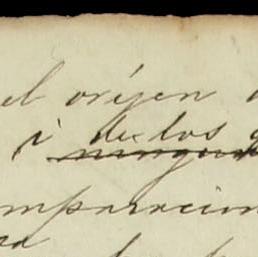 el oríjen
i de los
ninguna
omparacion